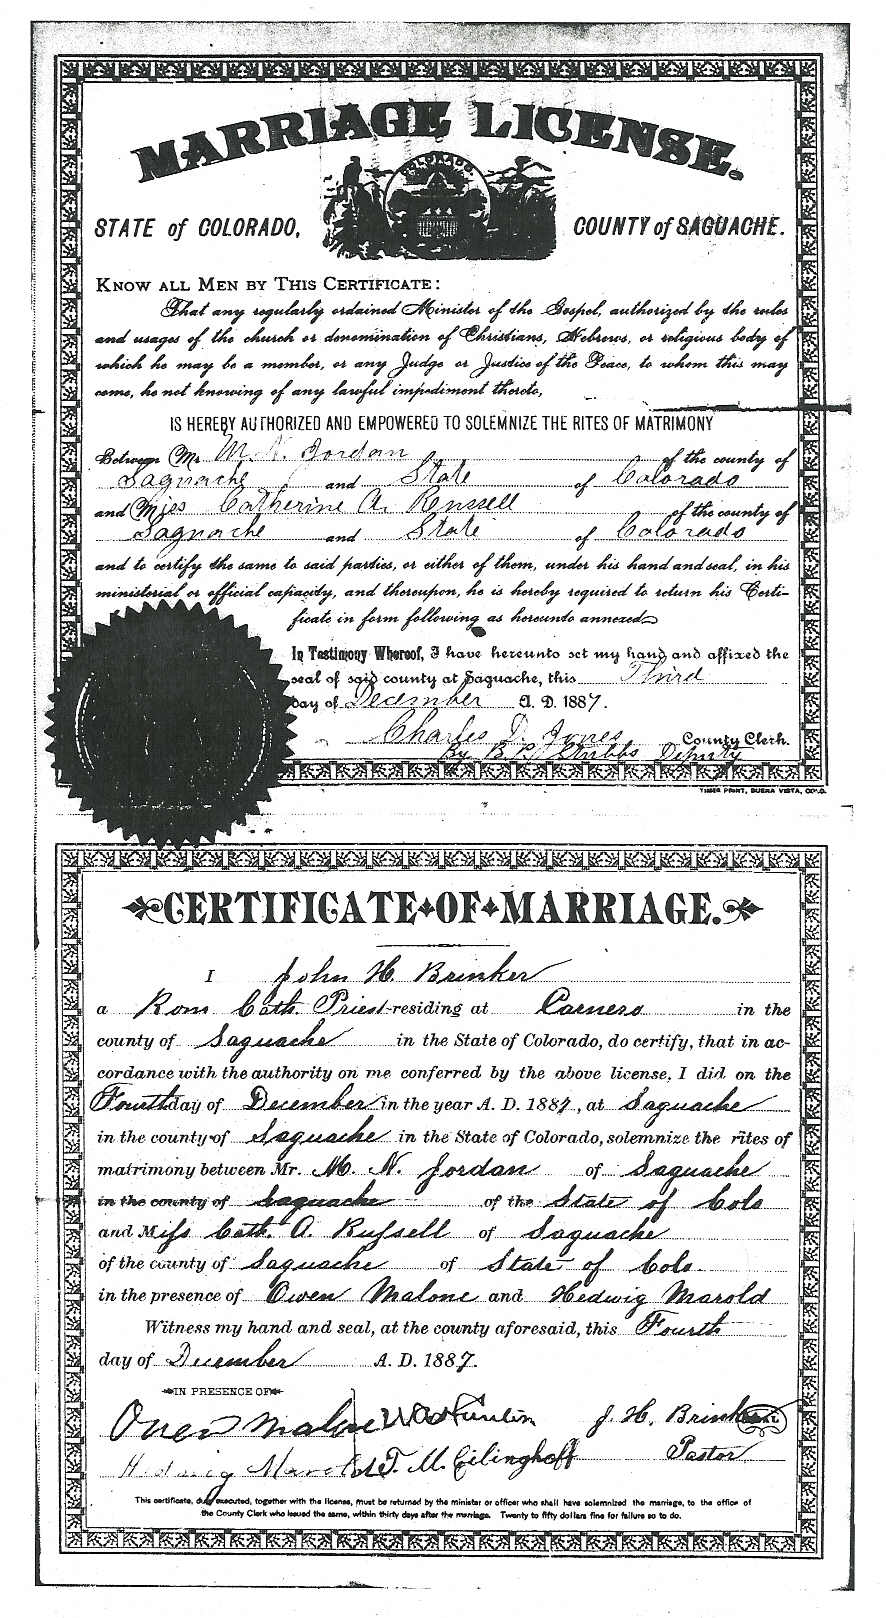 MARRIAGE LICENSE.
COLORADO
STATE of COLORADO, COUNTY of SAGUACHE.
KNOW ALL MEN BY THIS CERTIFICATE:
That any regularly ordained Minister of the Gospel, authorized by the rules
and usages of the church or denomination of Christians, Hebrews, or religious body of
which he may be a member, or any Judge or Justice of the Peace, to whom this may
come, he not knowing of any lawful impediment thereto,
IS HEREBY AUTHORIZED AND EMPOWERED TO SOLEMNIZE THE RITES OF MATRIMONY
Between Mr M. N. Jordan of the county of
Saguache and State of Colorado
and Miss Catherine A. Russell of the county of
Saguache and State of Colorado
and to certify the same to said parties, or either of them, under his hand and seal, in his
ministerial or official capacity, and thereupon, he is hereby required to return his Certi-
ficate in form following as hereunto annexed
In Testimony Whereof, I have hereunto set my hand and affixed the
seal of said county at Saguache, this Third
day of December A. D. 1887.
Charles D. Jones County Clerk.
By B. Grubbs Deputy
TIMES PRINT, BUENA VISTA, COLO.
CERTIFICATE OF MARRIAGE.
I John H. Brinker
a Rom Cath. Priest residing at Carnero in the
county of Saguache in the State of Colorado, do certify, that in ac-
cordance with the authority on me conferred by the above license, I did on the
Fourth day of December in the year A. D. 1887, at Saguache
in the county of Saguache in the State of Colorado, solemnize the rites of
matrimony between Mr. M. N. Jordan of Saguache
in the county of Saguache of the State of Colo
and Miss Cath. A. Russell of Saguache
of the county of Saguache of State of Colo.
in the presence of Owen Malone and Hedwig Marold
Witness my hand and seal, at the county aforesaid, this Fourth
day of December A. D. 1887.
IN PRESENCE OF
Owen Malone J. H. Brinker
Hedwig Marold T. M. Eilinghoff Pastor
This certificate, duly executed, together with the license, must be returned by the minister or officer who shall have solemnized the marriage, to the office of
the County Clerk who issued the same, within thirty days after the marriage. Twenty to fifty dollars fine for failure so to do.